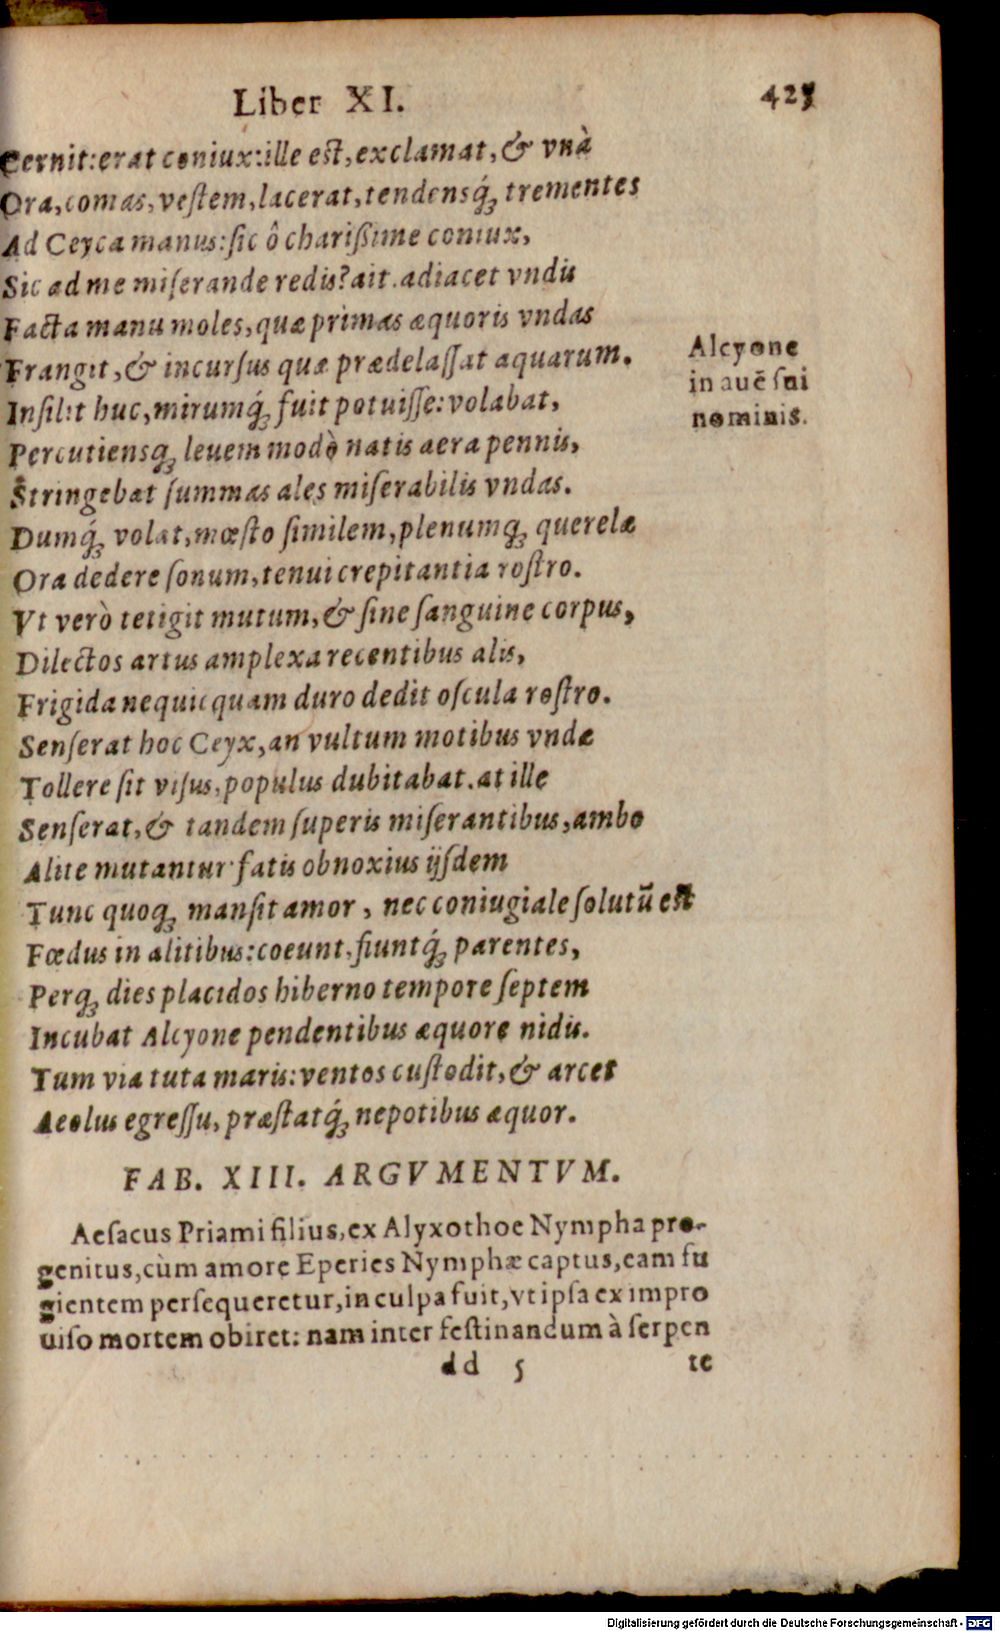 Liber XI. 425
Cernit: erat coniux: ille est, exclamat, & vnà
Ora, comas, veſtem, lacerat, tendensq́; trementes
Ad Ceyca manus: ſic ô chariſsime coniux,
Sic ad me miſerande redis? ait. adiacet vndis
Facta manu moles, quæ primas æquoris vndas
Frangit, & incurſus quæ prædelaſſat aquarum.
Inſilit huc, mirumq́; fuit potuiſſe: volabat,
Percutiensq; leuem modò natis aera pennis,
Stringebat ſummas ales miſerabilis vndas.
Dumq́; volat, mœſto ſimilem, plenumq; querelæ
Ora dedere ſonum, tenui crepitantia roſtro.
Vt verò tetigit mutum, & ſine ſanguine corpus,
Dilectos artus amplexa recentibus alis,
Frigida nequicquam duro dedit oſcula roſtro.
Senſerat hoc Ceyx, an vultum motibus vndæ
Tollere ſit viſus, populus dubitabat. at ille
Senſerat, & tandem ſuperis miſerantibus, ambo
Alite mutantur. fatis obnoxius ijſdem
Tunc quoq; manſit amor, nec coniugiale ſolutũ est
Fœdus in alitibus: coeunt, fiuntq́; parentes,
Perq; dies placidos hiberno tempore ſeptem
Incubat Alcyone pendentibus æquore nidis.
Tum via tuta maris: ventos cuſtodit, & arcet
Aeolus egreſſu, præſtatq́; nepotibus æquor.
Alcyone
in auẽ ſui
nominis.
FAB. XIII. ARGVMENTVM.
Aeſacus Priami filius, ex Alyxothoe Nympha pro-
genitus, cùm amore Eperies Nymphæ captus, eam fu
gientem perſequeretur, in culpa fuit, vt ipſa ex impro
uiſo mortem obiret: nam inter feſtinandum à ſerpen
dd 5 te
Digitalisierung gefördert durch die Deutsche Forschungsgemeinschaft - DFG